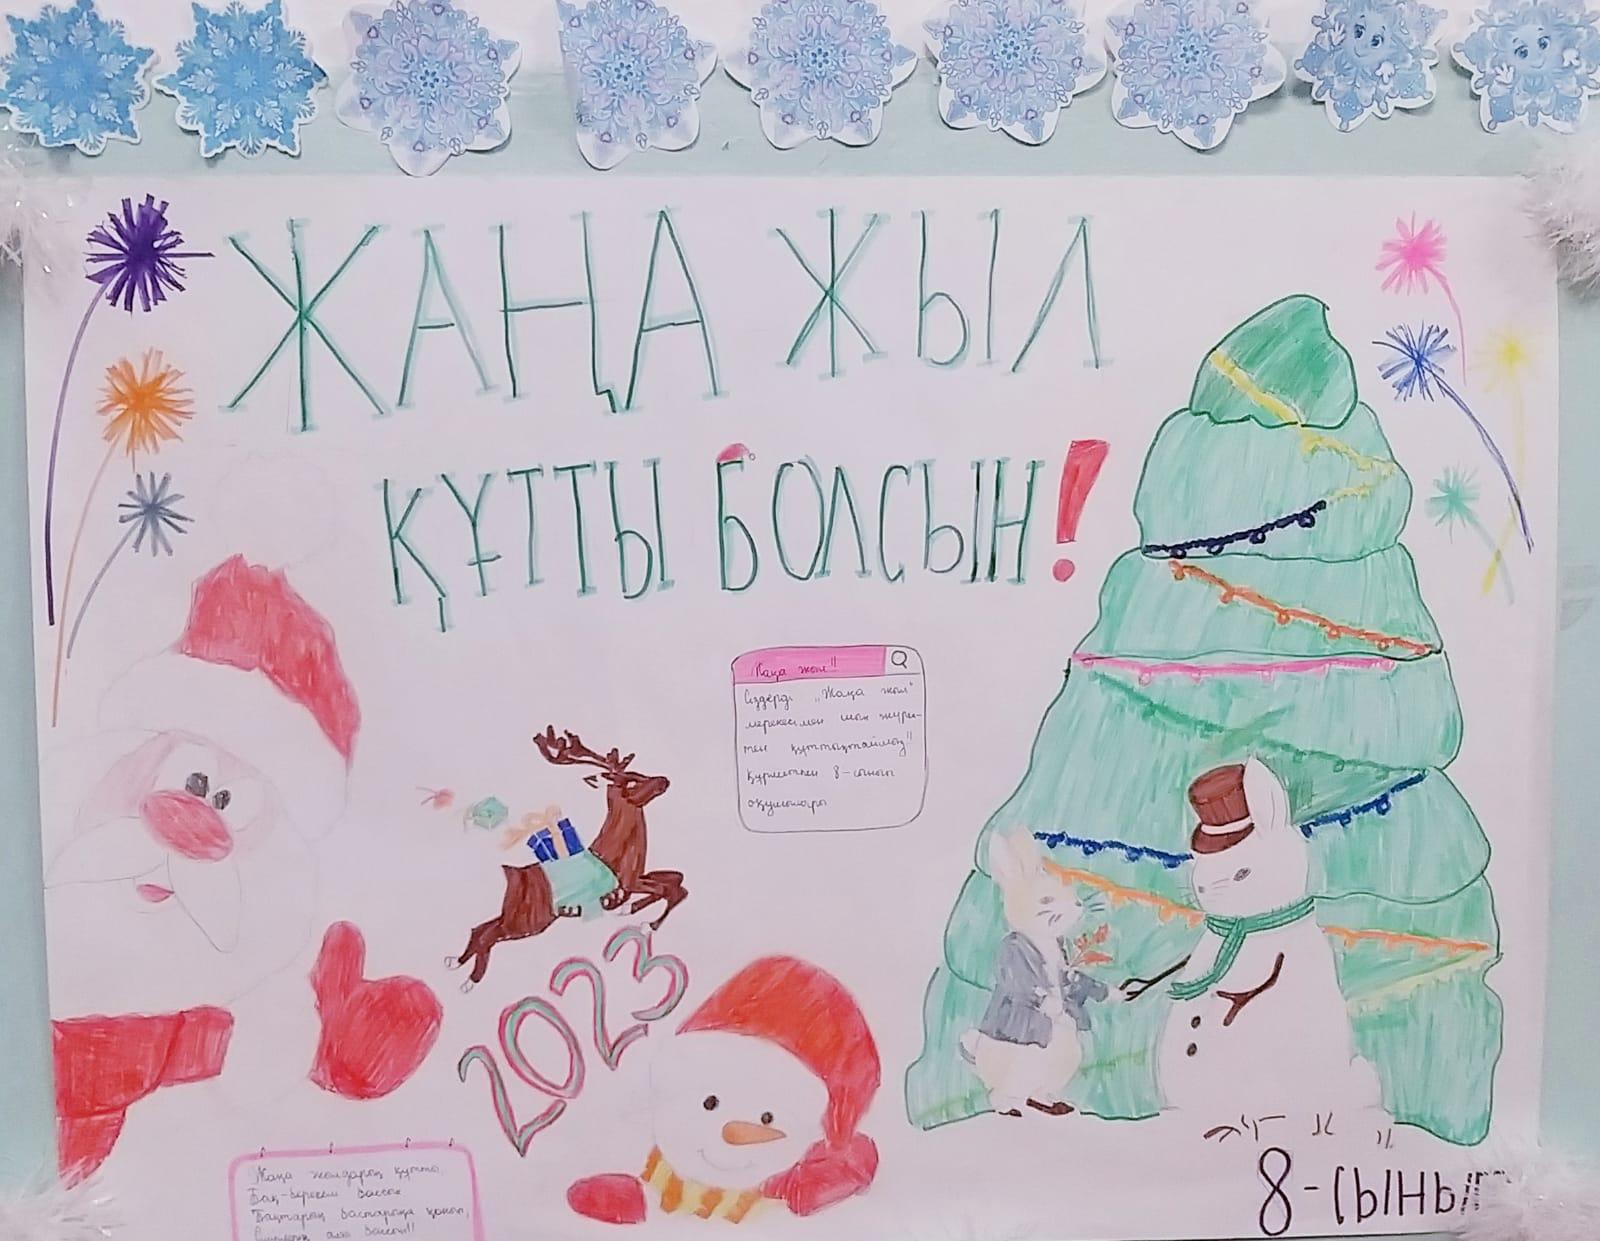 ЖАҢА ЖЫЛ
ҚҰТТЫ БОЛСЫН!
Жаңа жыл!!
Сіздерді „Жаңа жыл"
мерекесімен шын жүрек-
тен құттықтаймыз!!
Құрметпен 8-сынып
оқушылары
2023
Жаңа жылдарың құтты,
Бақ-береке болсын
Бақтарың бастарыңа қонып,
болсын!!
8-СЫНЫП